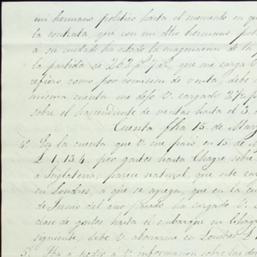 un hermano politico hasta el momento en q
la contrata, que con mi otro hermano polit
a su cuidado ha estado la magonacion de la
la partida es 262 que me carga V
refiero como por comision de venta, debe
misma cuenta me dejo V. cargado 27
sobre el de ventas hasta el 3
Cuenta fha 15 de May
4º En la cuenta que V. me paso en 15 de M
£ 1,154 por gastos hasta Chagre sobre
a Inglaterra, parece natural, que este car
en Londres, a que se agrega, que en la cu
de Junio del año pasado ha cargado V.
clase de gastos hasta el embarque en
siguiente, debe V. abonarme en Londres £
5º Ha a pedir a V. informacion sobre las do